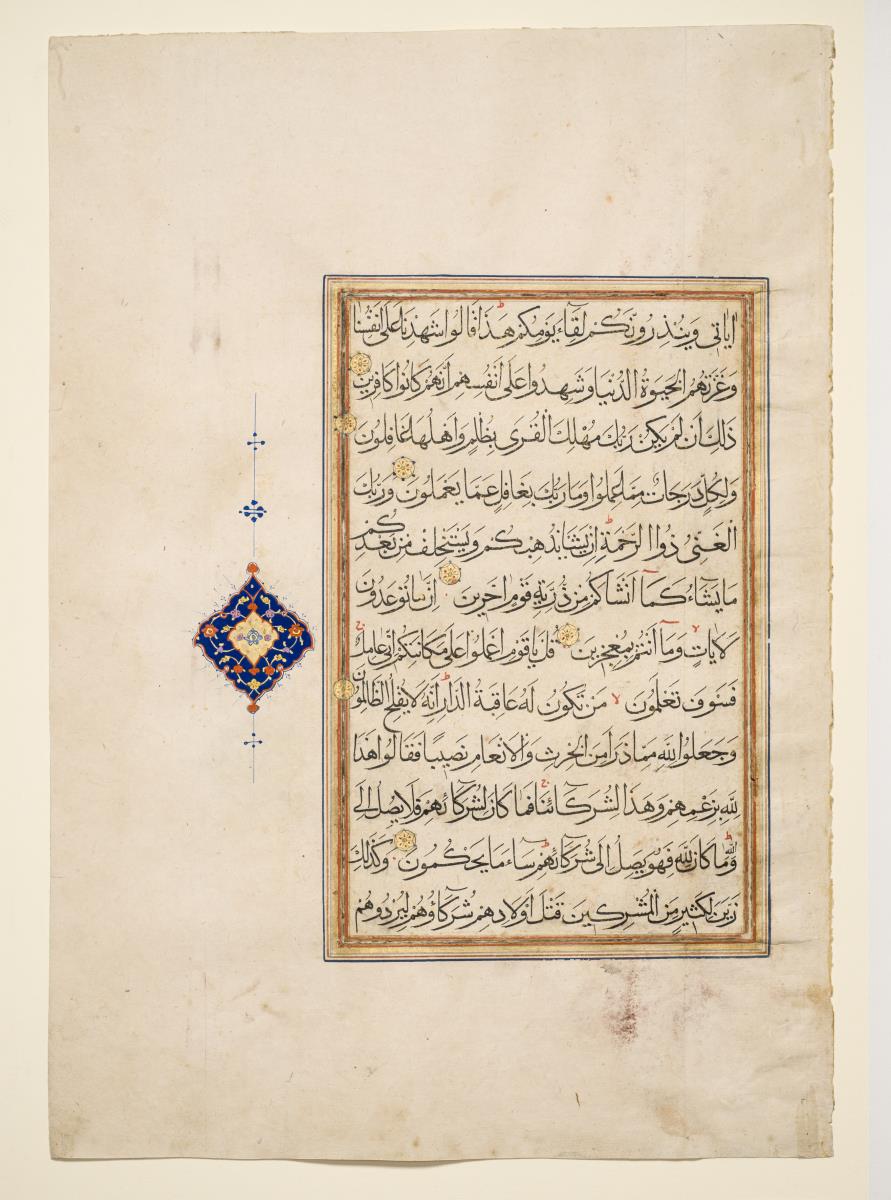 اياتى وينذرونكم لقاء يومكم هذا قالوا شهدنا على انفسنا
وغرتهم الحيوة الدنيا وشهدوا على انفسهم انهم كانوا كافرين
ذلك ان لم يكن ربك مهلك القرى بظلم واهلها غافلون
ولكل درجات مما عملوا وما ربك بغافل عما يعملون وربك
الغنى ذوا الرحمة ان يشا يذهبكم ويستخلف من بعدكم
ما يشاء كما انشاكم من ذرية قوم اخرين ان ما توعدون
لايات وما انتم بمعجزين قل يا قوم اعملوا على مكانتكم انى عامل
فسوف تعلمون من تكون له عاقبة الدار انه لا يفلح الظالمون
وجعلوا لله مما ذرا من الحرث والانعام نصيبا فقالوا هذا
لله بزعمهم وهذا لشركائنا فما كان لشركائهم فلا يصل الى
الله وما كان لله فهو يصل الى شركائهم ساء ما يحكمون وكذلك
زين لكثير من المشركين قتل اولادهم شركاؤهم ليردوهم